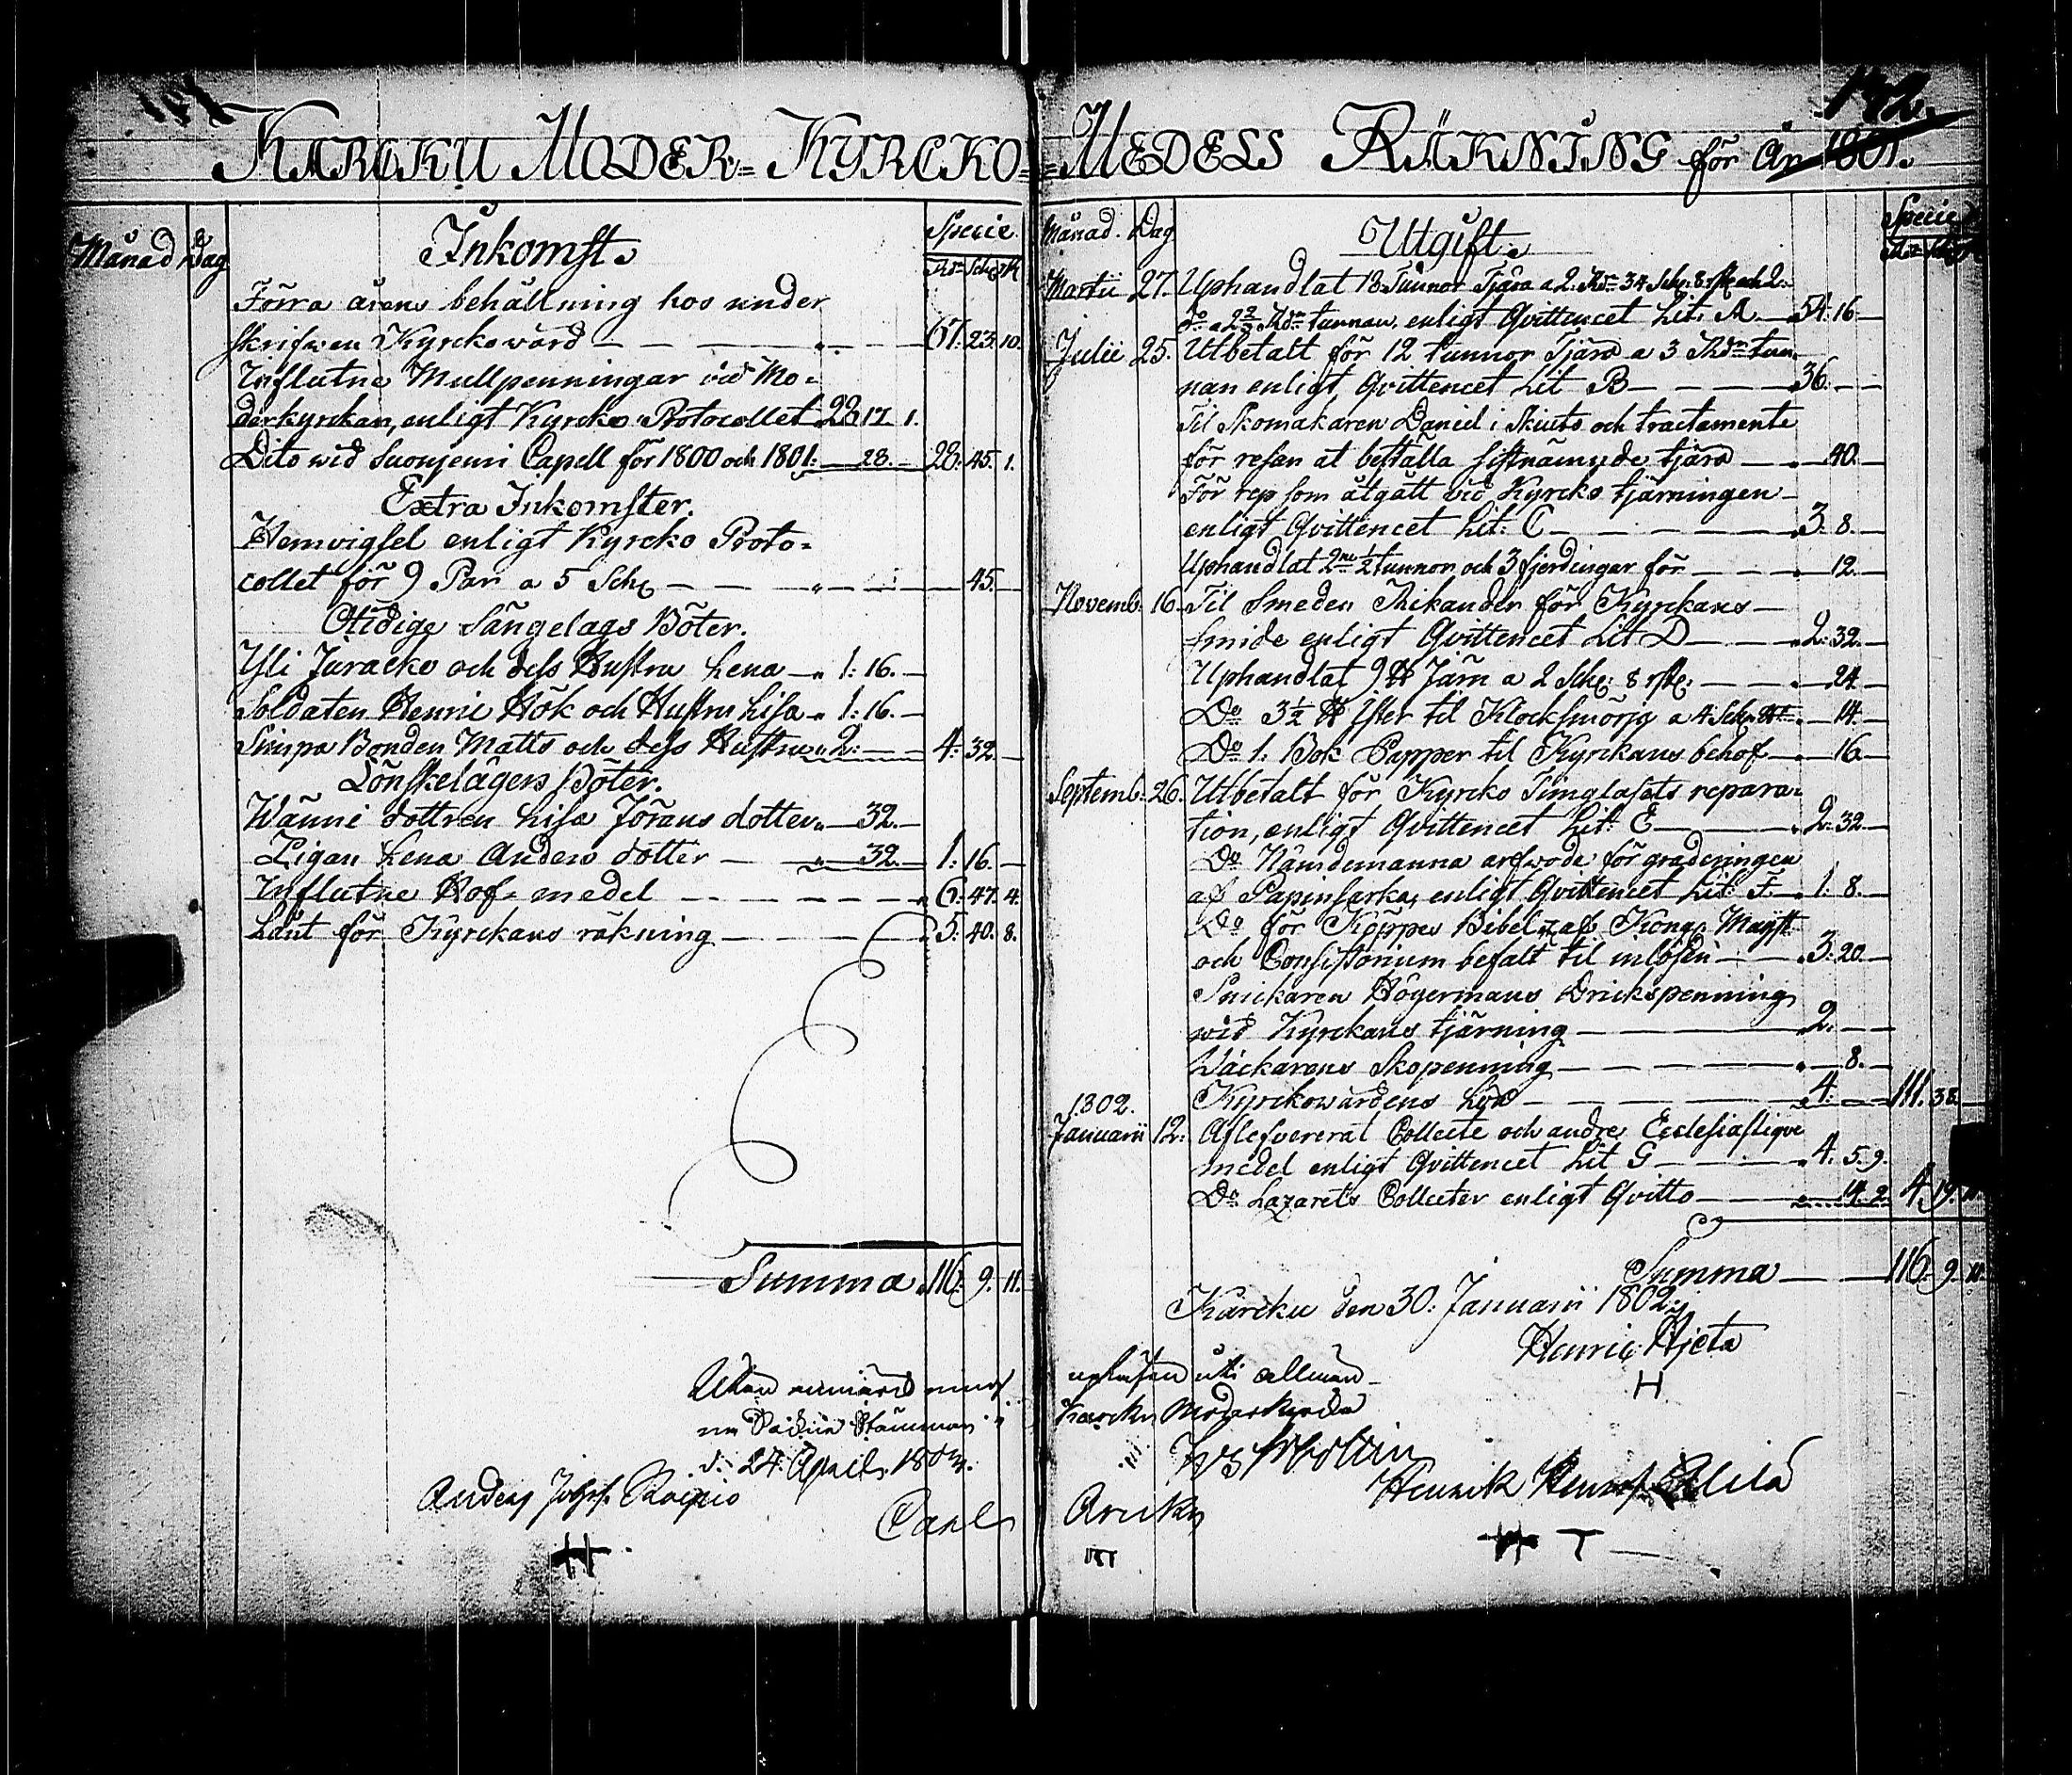 142.
KARCKU MODER=KYRCKO=MEDELS RÄKNING för År 1801.
Månad Dag Inkomst. Specie
Rdr Schg rst
Förra årens behållning hos under
skrifwen Kyrckowärd — — — 67. 23. 10.
Influtne Mullpenningar vid Mo=
derkyrckan, enligt Kyrcko Protocollet 28 17. 1.
Dito wid Suonjemi Capell för 1800 och 1801: — 28. — 28. 45. 1.
Extra Inkomster.
Hemvigsel enligt Kyrcko Proto=
collet för 9 Par a 5 Schg — — — 45. —
Otidige Sängelags Böter.
Yli Juracko och dess Hustru Lena — 1: 16. —
Soldaten Henric Hök och Hustru Lisa 1: 16. —
Simpa Bonden Matts och dess Hustru 2: — — 4: 32. —
Lönskelägers Böter.
Wänni dottren Lisa Jörans dotter — 32. —
Pigan Lena Anders dotter — — 32. — 1: 16. —
Influtne Hof=medel — — — 6: 47. 4.
Lånt för Kyrckans räkning — — 5: 40. 8.
Summa 116: 9. 11.
Månad. Dag Utgift. Specie
Martii 27. Uphandlat 18 Tunnor Tjära a 2. Rdr 34 Schg. 8 rst och 2.
do a 2 2/3 Rdr tunnan, enligt Qvittencet Lit. A — 54: 16 —
Julii 25. Utbetalt för 12 tunnor Tjära a 3 Rdr tun=
nan enligt Qvittencet Lit B — — — 36. — —
Til Skomakaren Daniel i Skiuts och tractamente
för resan at beställa sistnämnde tjära — — 40. —
För rep som åtgått vid Kyrcko tjärningen —
enligt Qvittencet Lit: C — — — 3: 8. —
Uphandlat 2ne 1/2 tunnor och 3 fjerdingar för — — 12. —
Novemb. 16. Til Smeden Thikander för Kyrckans —
smide enligt Qvittencet Lit D — — 2: 32. —
Uphandlat 9 ℔ Järn a 2 Schg: 8 rst: — — 24 —
Do 3 1/2 ℔ Ister til Klocksmörjg a 4 Schg — 14. —
Do 1. Bok Papper til Kyrckans behof — — 16. —
Septemb. 26. Utbetalt för Kyrcko Timglasets repara=
tion, enligt Qvittencet Lit: E — — 2: 32 —
Do Nämdemanna arfwode för graderingen
af Papinsarka, enligt Qvittencet Lit: F. — 1: 8. —
Do för Körpes Bibel af Kongl. Mayst
och Consistorium befalt til inlösen — — 3: 20. —
Snickaren Högermans Drickspenning
wid Kyrckans tjärning — — — 2. — —
Wäckarens Skopenning — — — 8. —
Kyrckowärdens Lön — — — 4: — — 111. 38. —
1802.
Januarii 12: Aflefvererat Collecte och andre Ecclesiastique
medel enligt Qvittencet Lit G — — — 4. 5. 9.
Do Lazarets Collecter enligt Qvitto — — 14. 2. 4. 19. 11.
Summa — — 116. 9. 11.
Karcku den 30. Januarii 1802.
Henric Hjeta
H
upläsen uti allmän
Karcku Moderkyrcka
d. 24. April 1803.
Anders
Carl
Henrik